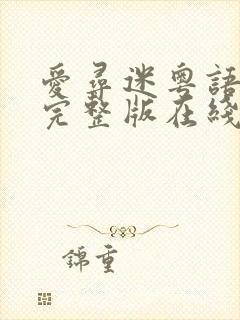 愛尋迷粵語
完整版在綫
錦重